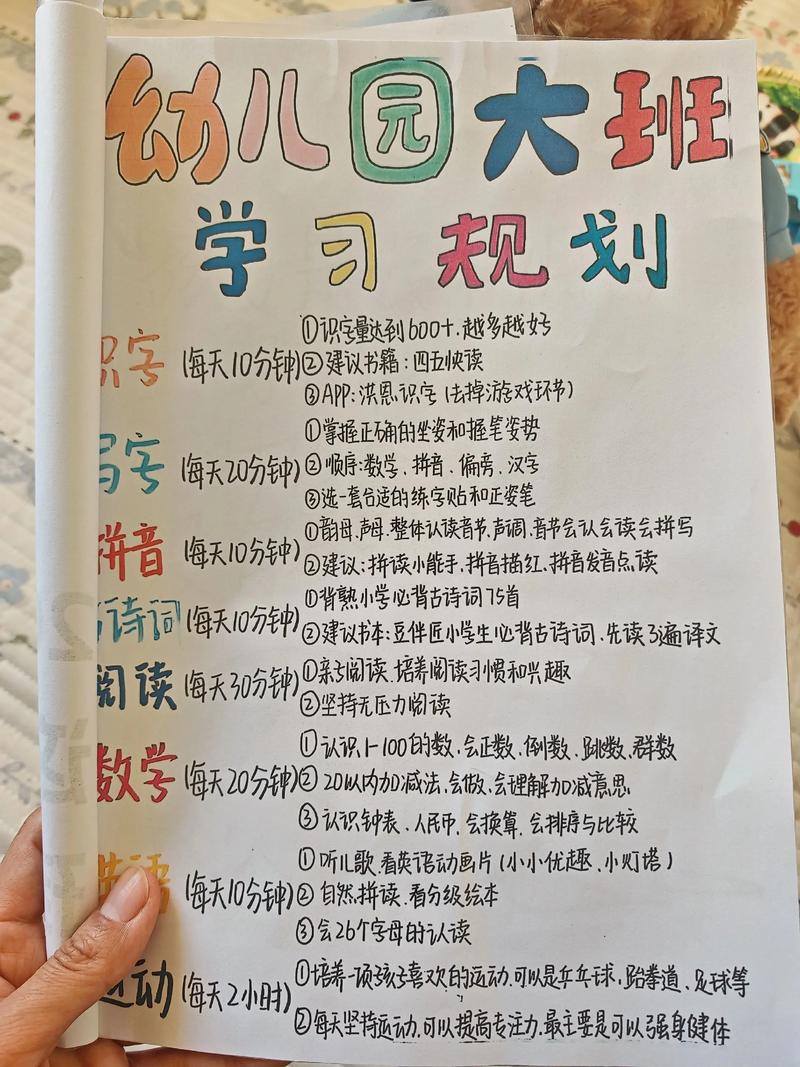 幼儿园大班
学习规划
识字 (每天10分钟) ①识字量达到600+.越多越好
②建议书籍:四五快读
③APP:洪恩识字(去掉游戏环节)
写字 (每天20分钟) ①掌握正确的坐姿和握笔姿势
②顺序:数学、拼音、偏旁、汉字
③选一套合适的练字贴和正姿笔
拼音 (每天10分钟) ①韵母.声母.整体认读音节.声调.音节会认会读会拼写
②建议:拼读小能手.拼音描红.拼音发音点读
诗词 (每天10分钟) ①背熟小学必背古诗词75首
②建议书本:豆伴匠小学生必背古诗词.先读3遍译文
阅读 (每天30分钟) ①亲子阅读.培养阅读习惯和兴趣
②坚持无压力阅读
数学 (每天20分钟) ①认识1-100的数.会正数、倒数、跳数、群数
②20以内加减法.会做.会理解加减意思.
③认识钟表、人民币.会换算.会排序与比较
英语 (每天10分钟) ①听儿歌.看英语动画片(小小优趣.小灯塔)
②自然拼读.看分级绘本
③会26个字母的认读
运动 (每天2小时) ①培养一项孩子喜欢的运动.可以是乒乓球.跆拳道、足球等
②每天坚持运动.可以提高专注力.最主要是可以强身健体